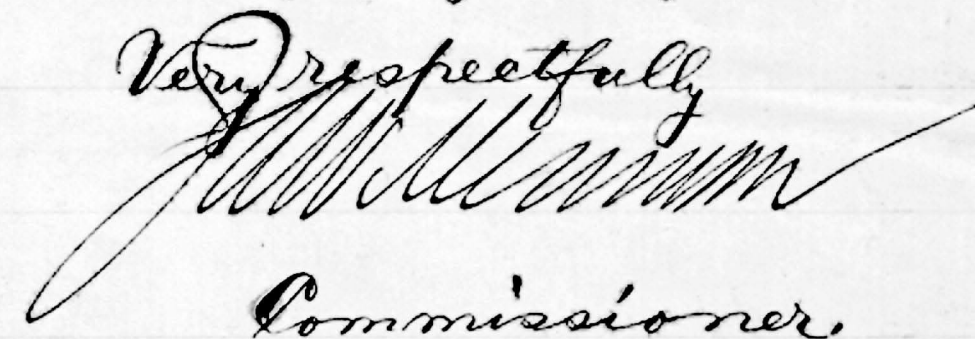 Very respectfully
Commissioner.